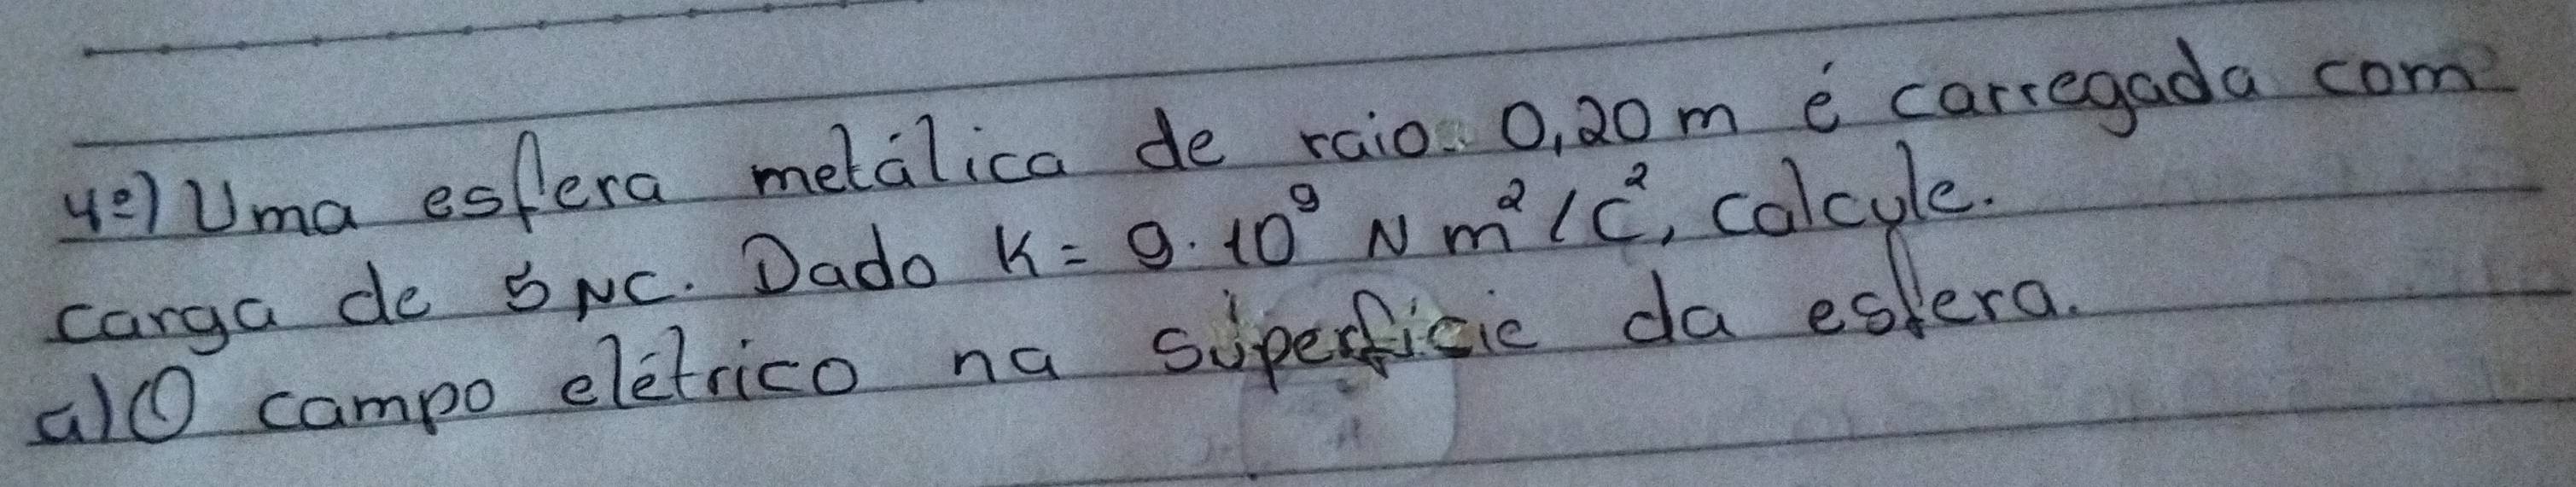 4º) Uma esfera metálica de raio 0,20 m é carregada com
carga de 5 NC. Dado K = 9.10⁹ N m²/C², calcule.
a) O campo elétrico na superfície da esfera.